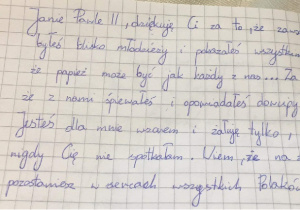 Janie Pawle II, dziękuję Ci za to, że zaws
byłeś blisko młodzieży i pokazałeś wszystkim
że papież może być jak każdy z nas... Za
że z nami śpiewałeś i opowiadałeś dowcipy
Jesteś dla mnie wzorem i żałuję tylko,
nigdy Cię nie spotkałam. Wiem, że na z
pozostaniesz w sercach wszystkich Polaków